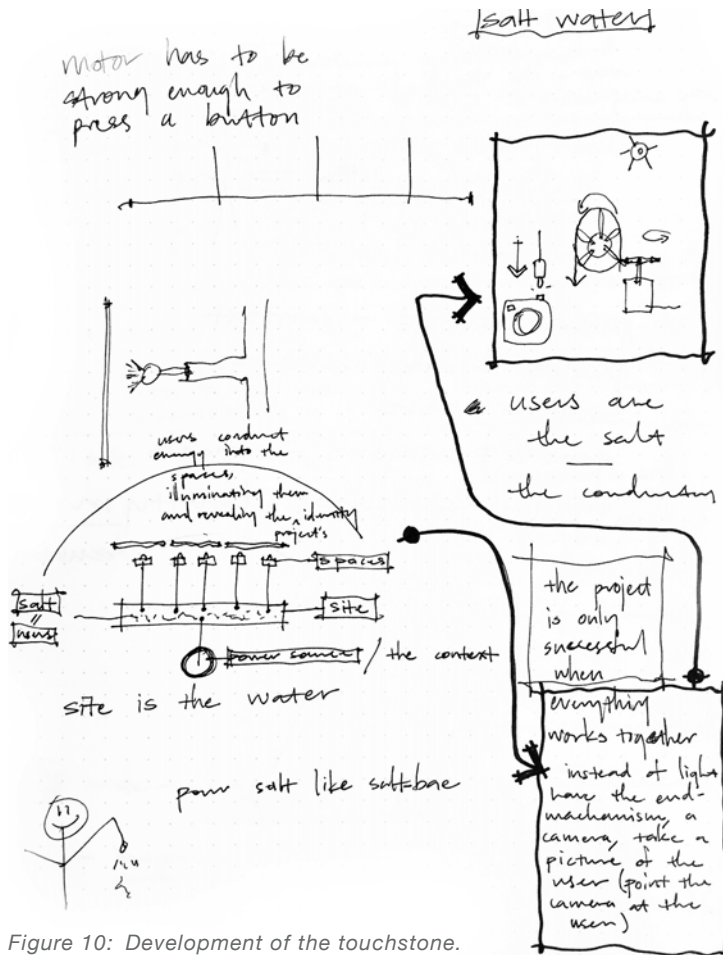 salt water
motor has to be
strong enough to
press a button
users are
the salt
the conductors
users conduct
energy into the
spaces,
illuminating them
and revealing the project's identity
spaces
salt
=
users
site
power source / the context
site is the water
the project
is only
successful
when
everything
works together
instead of light
have the end-
mechanism, a
camera, take a
picture of the
user (point the
camera at the
user)
pour salt like saltbae
Figure 10: Development of the touchstone.